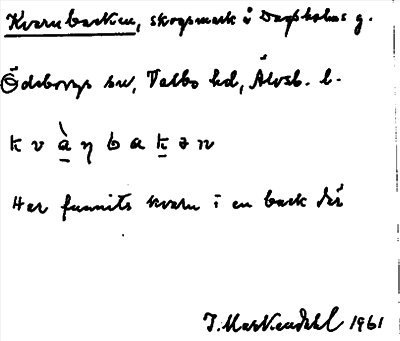 Kvarnbacken, skogsmark å Dagsholms g.
Ödsborgs sn, Valbo hd, Älvsb. l.
k v à ŋ b a k ə n
Har funnits kvarn i en bäck där
1961